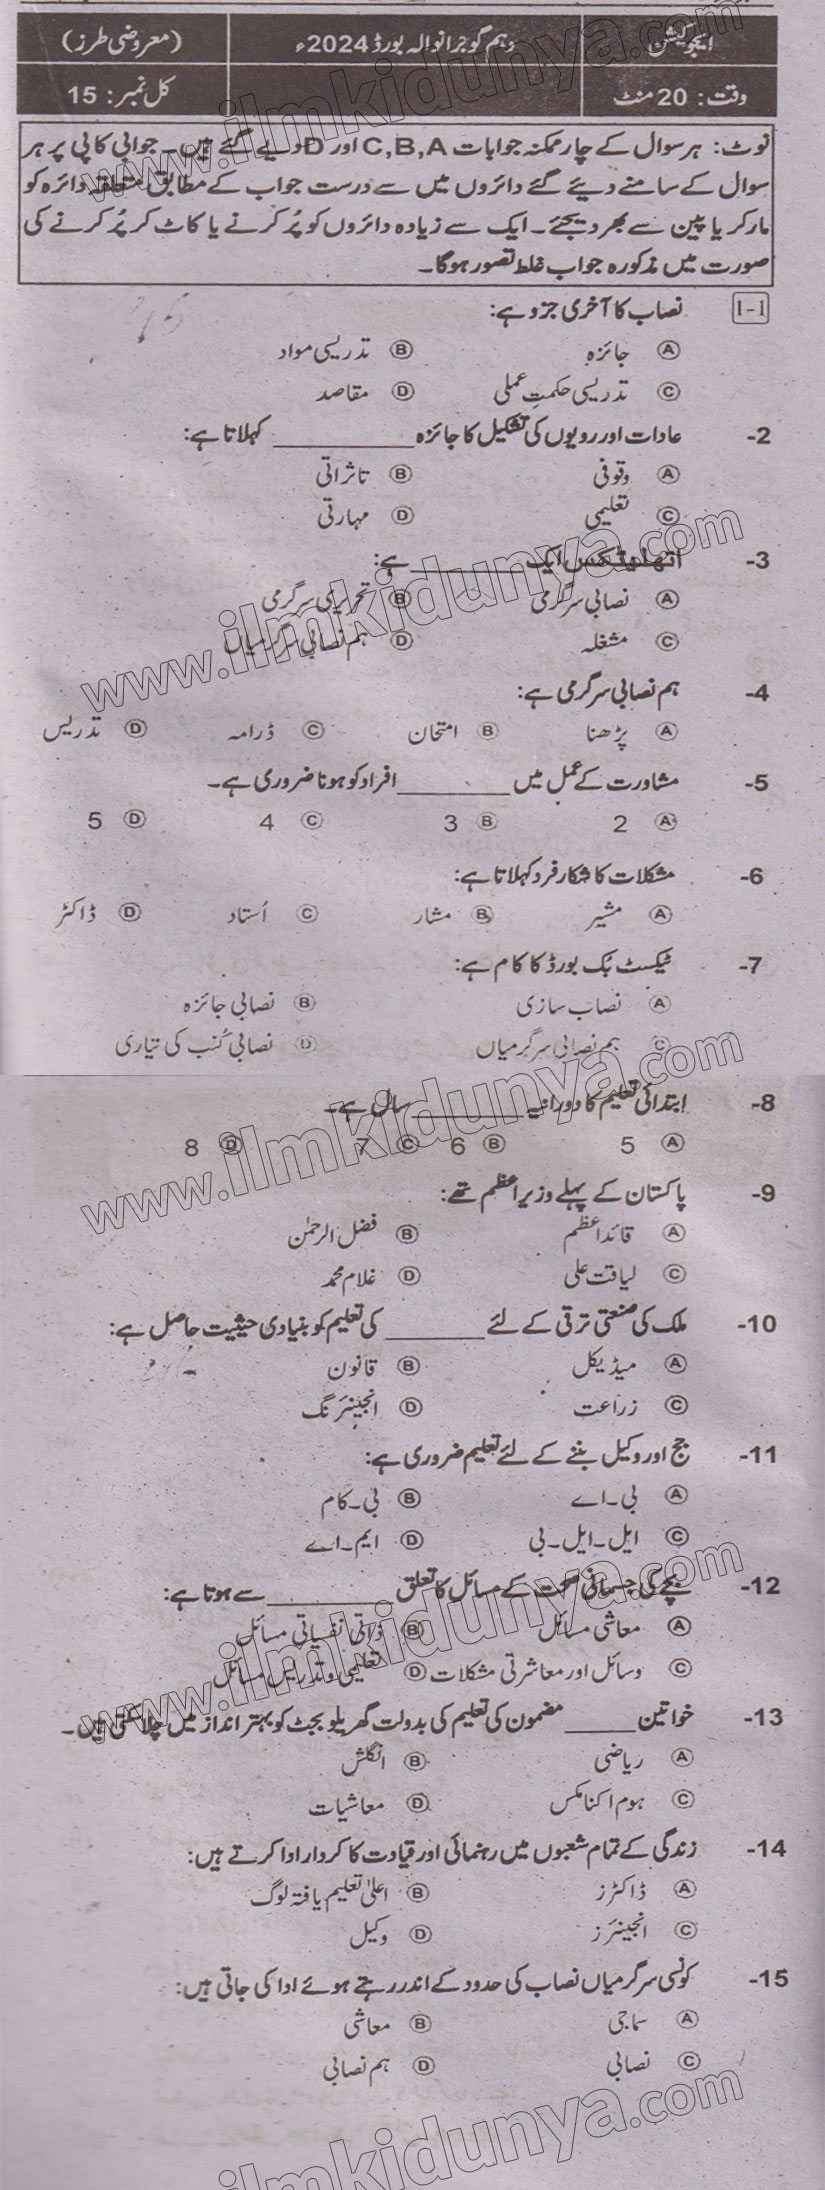 ایجوکیشن دہم گوجرانوالہ بورڈ 2024ء (معروضی طرز)
وقت: 20 منٹ کل نمبر: 15
نوٹ: ہر سوال کے چار ممکنہ جوابات C,B,A اور D دیے گئے ہیں۔ جوابی کاپی پر ہر
سوال کے سامنے دیئے گئے دائروں میں سے درست جواب کے مطابق متعلقہ دائرہ کو
مارکر یا پین سے بھر دیجئے۔ ایک سے زیادہ دائروں کو پُر کرنے یا کاٹ کر پُر کرنے کی
صورت میں مذکورہ جواب غلط تصور ہوگا۔
1-1 نصاب کا آخری جزو ہے:
A جائزہ B تدریسی مواد
C تدریسی حکمتِ عملی D مقاصد
-2 عادات اور رویوں کی تشکیل کا جائزہ __________ کہلاتا ہے:
A وقوفی B تاثراتی
C تعلیمی D مہارتی
-3 اتھلیٹکس ایک ________ ہے:
A نصابی سرگرمی B تحریری سرگرمی
C مشغلہ D ہم نصابی سرگرمیاں
-4 ہم نصابی سرگرمی ہے:
A پڑھنا B امتحان C ڈرامہ D تدریس
-5 مشاورت کے عمل میں ________ افراد کو ہونا ضروری ہے۔
A 2 B 3 C 4 D 5
-6 مشکلات کا شکار فرد کہلاتا ہے:
A مشیر B مشار C اُستاد D ڈاکٹر
-7 ٹیکسٹ بُک بورڈ کا کام ہے:
A نصاب سازی B نصابی جائزہ
C ہم نصابی سرگرمیاں D نصابی کُتب کی تیاری
-8 ابتدائی تعلیم کا دورانیہ ________ سال ہے۔
A 5 B 6 C 7 D 8
-9 پاکستان کے پہلے وزیراعظم تھے:
A قائداعظم B فضل الرحمٰن
C لیاقت علی D غلام محمد
-10 ملک کی صنعتی ترقی کے لئے _______ کی تعلیم کو بنیادی حیثیت حاصل ہے:
A میڈیکل B قانون
C زراعت D انجینئرنگ
-11 جج اور وکیل بننے کے لئے تعلیم ضروری ہے:
A بی۔اے B بی۔کام
C ایل۔ایل۔بی D ایم۔اے
-12 بچے کی جسمانی صحت کے مسائل کا تعلق _________ سے ہوتا ہے:
A معاشی مسائل B ذاتی نفسیاتی مسائل
C وسائل اور معاشرتی مشکلات D تعلیمی و تدریس مسائل
-13 خواتین _____ مضمون کی تعلیم کی بدولت گھریلو بجٹ کو بہتر انداز میں چلا سکتی ہیں۔
A ریاضی B انگلش
C ہوم اکنامکس D معاشیات
-14 زندگی کے تمام شعبوں میں رہنمائی اور قیادت کا کردار ادا کرتے ہیں:
A ڈاکٹرز B اعلیٰ تعلیم یافتہ لوگ
C انجینئرز D وکیل
-15 کونسی سرگرمیاں نصاب کی حدود کے اندر رہتے ہوئے ادا کی جاتی ہیں:
A سماجی B معاشی
C نصابی D ہم نصابی
www.ilmkidunya.com
www.ilmkidunya.com
www.ilmkidunya.com
www.ilmkidunya.com
www.ilmkidunya.com